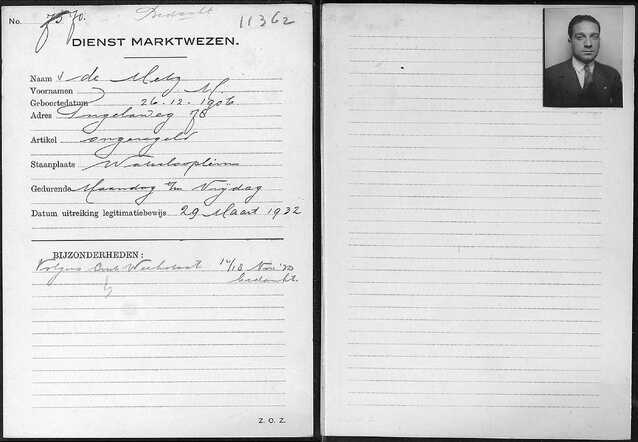 No. 70. Bedankt 11362
DIENST MARKTWEZEN.
Naam de Metz
Voornamen M.
Geboortedatum 26-12-1906
Adres 78
Artikel ongeregeld
Staanplaats Waterlooplein
Gedurende Maandag t/m Vrijdag
Datum uitreiking legitimatiebewijs 29 Maart 1932
BIJZONDERHEDEN:
Volgens Weekstaat Nov
bedankt.
Z. O. Z.